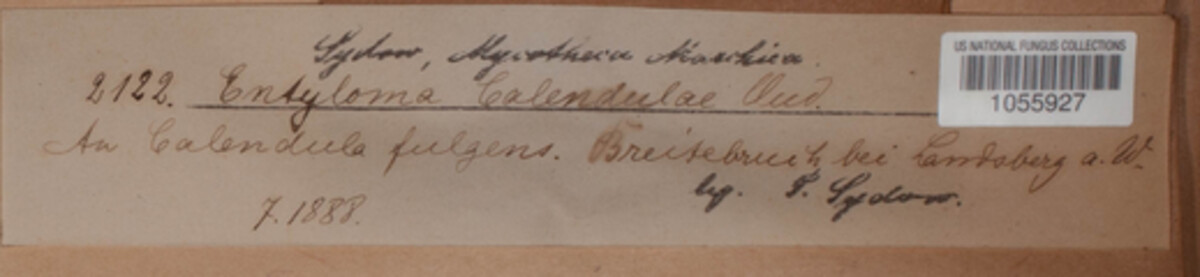 Sydow, Mycotheca Marchica.
US NATIONAL FUNGUS COLLECTIONS
1055927
2122. Entyloma Calendulae Oud.
An Calendula fulgens. Breitebruch bei Landsberg a. W.
7. 1888.
lg. P. Sydow.